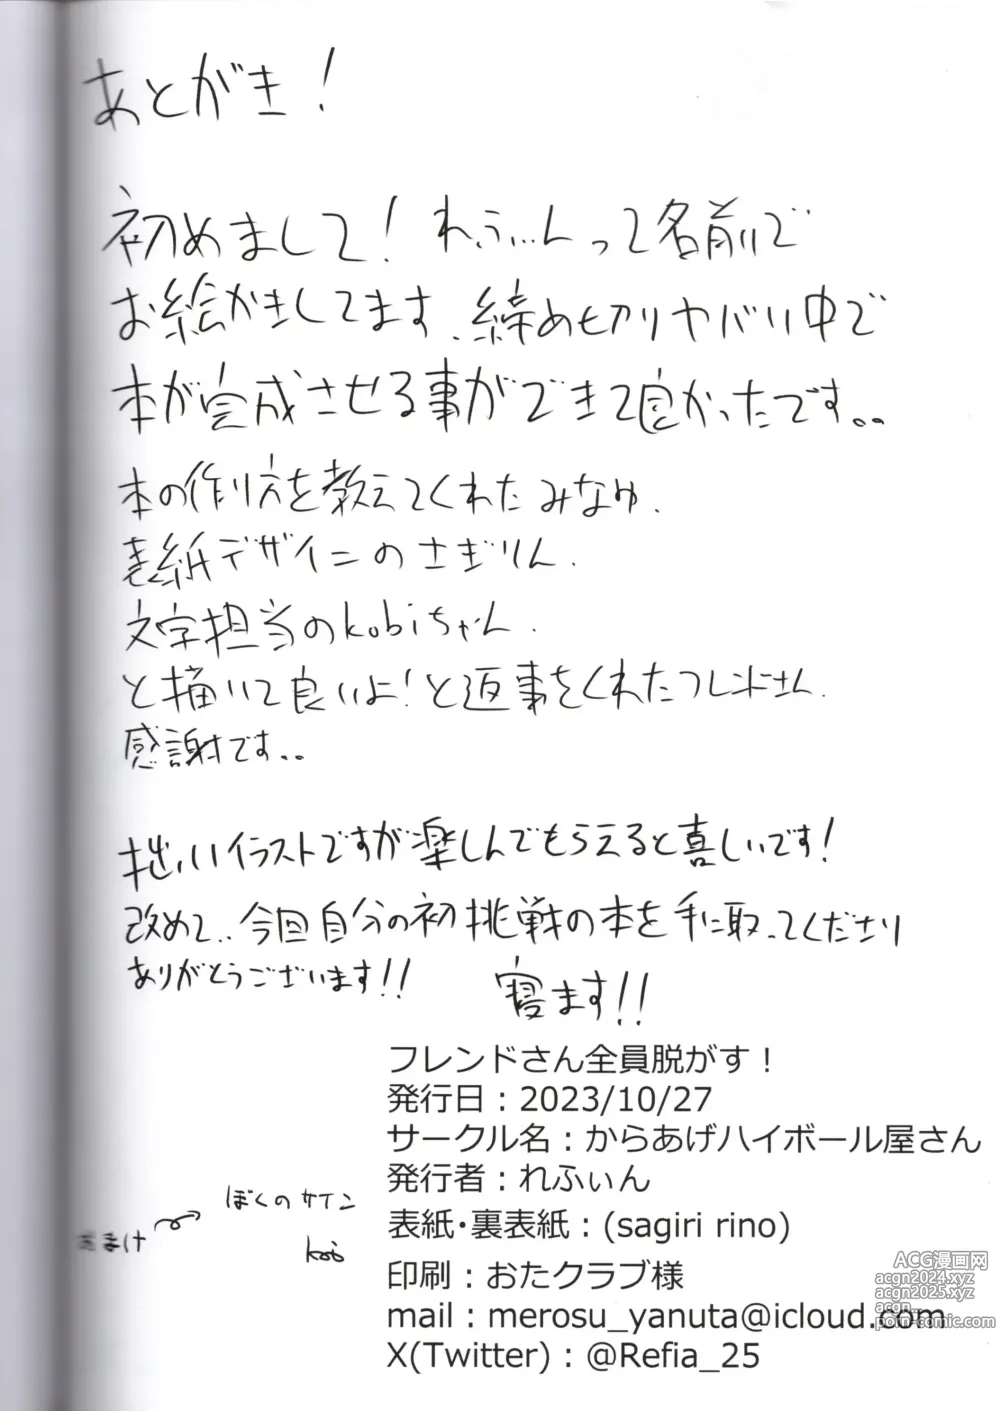 あとがき!
初めまして! れふぃんって名前で
お絵かきしてます、締め切りヤバい中で
本が完成させる事ができて良かったです。。
本の作り方を教えてくれたみなゆ、
表紙デザインのさぎりん、
文字担当のkobiちゃん、
と描いて良いよ!と返事をくれたフレンドさん、
感謝です。。
拙いイラストですが楽しんでもらえると喜しいです!
改めて、今回自分の初挑戦の本を手に取ってくださり
ありがとうございます!!
寝ます!!
フレンドさん全員脱がす!
発行日:2023/10/27
サークル名:からあげハイボール屋さん
発行者:れふぃん
表紙・裏表紙:(sagiri rino)
印刷:おたクラブ様
mail:merosu_yanuta@icloud.com
X(Twitter):@Refia_25
おまけ
ぼくのサイン
ACG漫画网
acgn2024.xyz
acgn2025.xyz
acgn...
porn-comic.com